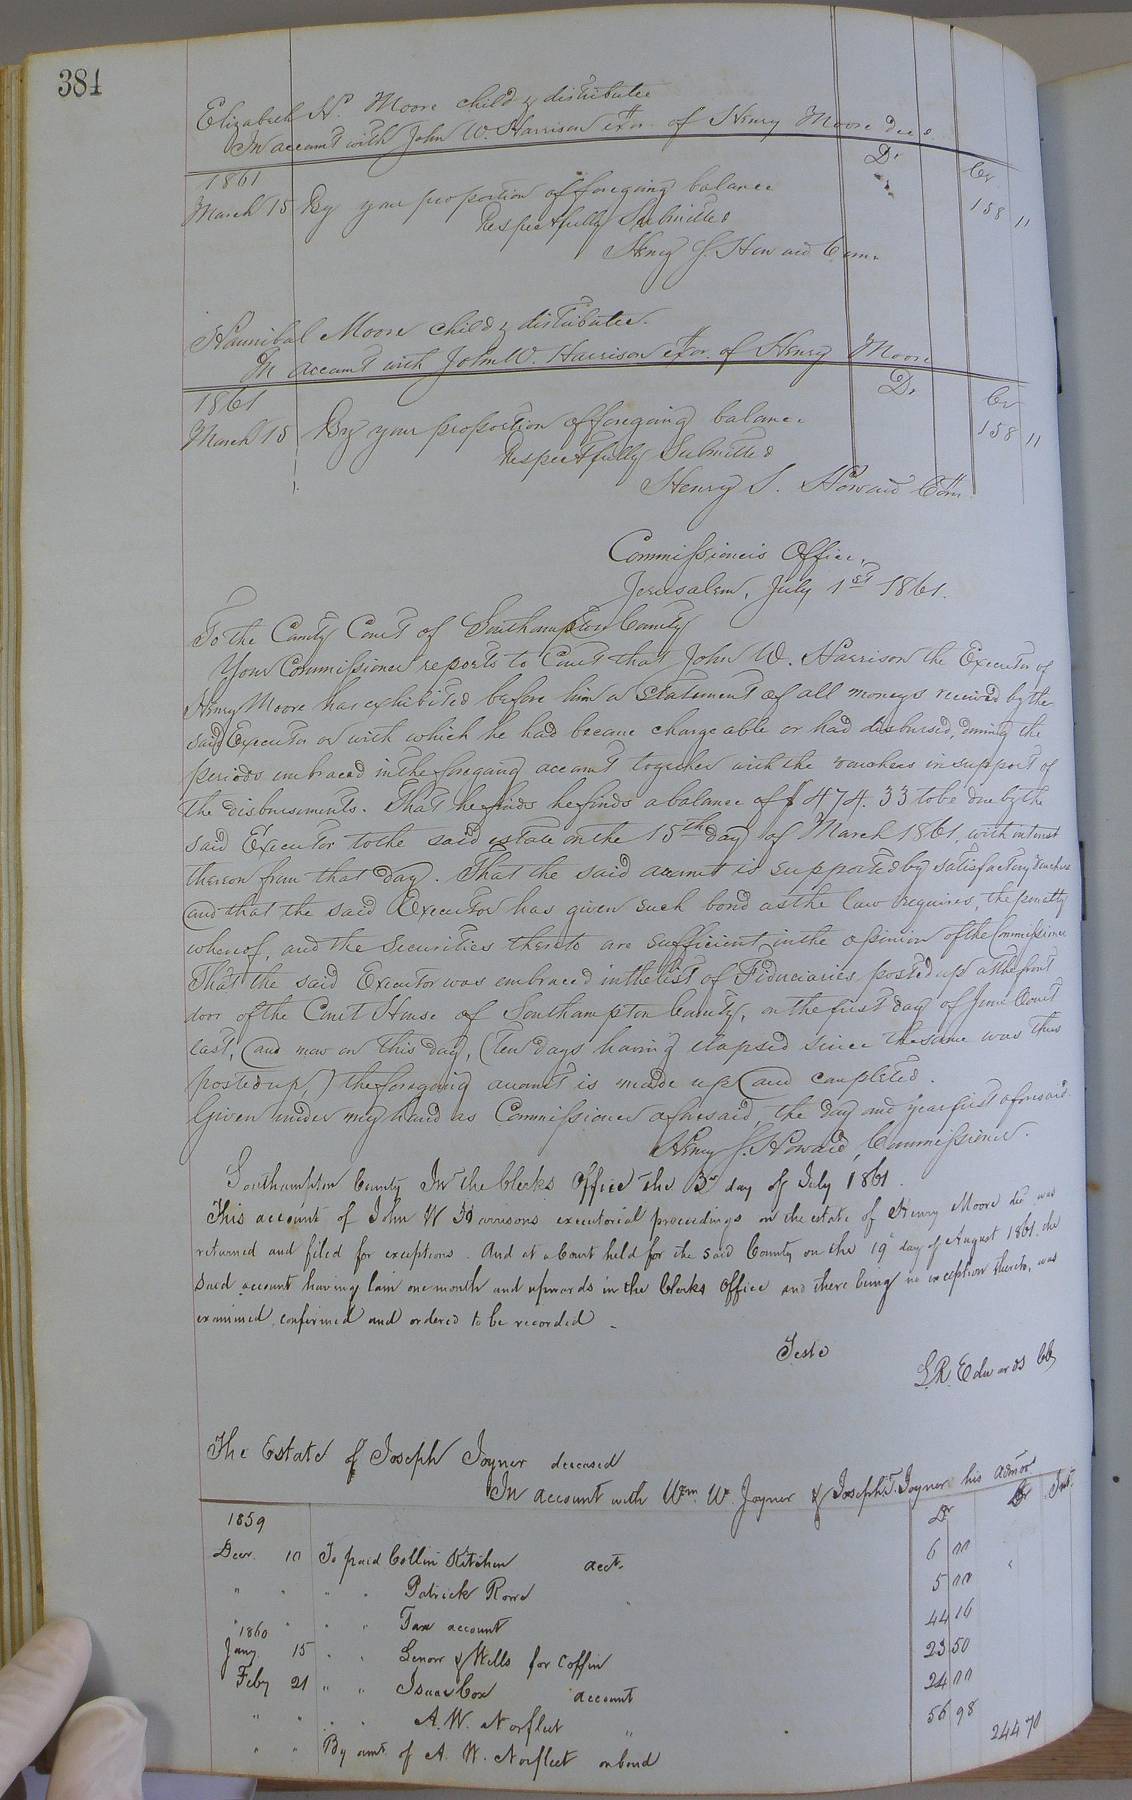 384
Elizabeth N. Moore child & distributee
In account with John W. Harrison exor. of Henry Moore decd.
Dr Cr
1861
March 15 By your proportion of foregoing balance 158 11
Respectfully Submitted
Henry S. Howard Com.
Hannibal Moore child & distributee.
In account with John W. Harrison exor. of Henry Moore
Dr Cr
1861
March 15 By your proportion of foregoing balance 158 11
Respectfully Submitted
Henry S. Howard Com.
Commissioners Office,
Jerusalem, July 1st 1861.
To the County Court of Southampton County
Your Commissioner reports to Court that John W. Harrison the Executor of
Henry Moore has exhibited before him a Statement of all moneys received by the
said Executor or with which he had became chargeable or had disbursed, during the
periods embraced in the foregoing account together with the vouchers in support of
the disbursements. That he finds he finds a balance of $474.33 to be due by the
said Executor to the said estate on the 15th day of March 1861, with interest
thereon from that day. That the said account is supported by satisfactory vouchers
and that the said Executor has given such bond as the law requires, the penalty
whereof, and the securities thereto are sufficient in the opinion of the Commissioner
That the said Executor was embraced in the list of Fiduciaries posted up at the front
door of the Court House of Southampton County, on the first day of June Court
last, and now on this day, (ten days having elapsed since the same was thus
posted up) the foregoing account is made up and completed.
Given under my hand as Commissioner aforesaid, the day and year first aforesaid.
Henry S. Howard, Commissioner.
Southampton County In the Clerks Office the 3d day of July 1861.
This account of John W Harrisons executorial proceedings on the estate of Henry Moore decd was
returned and filed for exceptions. And at a Court held for the said County on the 19th day of August 1861. the
said account having lain one month and upwards in the Clerks Office and there being no exception thereto, was
examined, confirmed and ordered to be recorded.
Teste
L.R. Edwards Clk
The Estate of Joseph Joyner deceased
In account with Wm. W. Joyner & Joseph T. Joyner his admors
1859 Dr Cr Int.
Decr. 10 To paid Collin Kitchen acct. 6 00
" " " " Patrick Rowe 5 00
" " " " Tax account 44 16
1860
Jany 15 " " Lenow & Wells for coffin 23 50
Feby 21 " " Isaac Cox account 24 00
" " " " A. W. Norfleet " 56 98
" " By amt. of A. W. Norfleet on bond 244 70